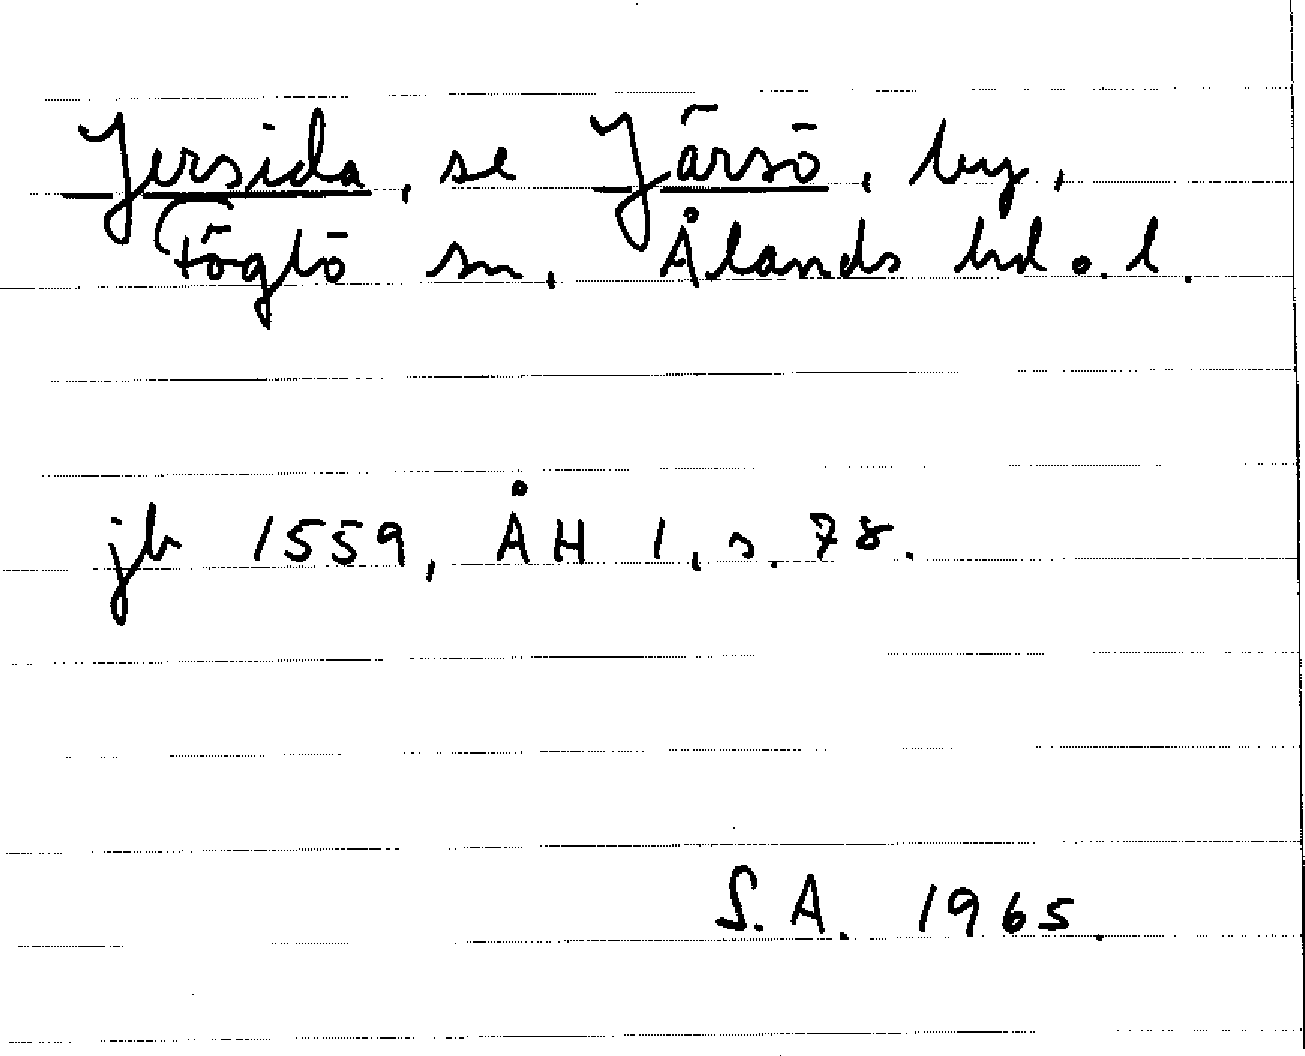 Jersida, se Järsö, by,
Föglö sn, Ålands hd o. l.
jb 1559, ÅH 1, s. 78.
S.A. 1965.